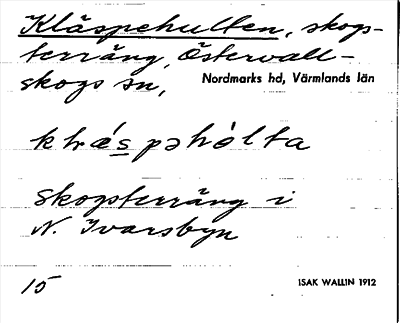 Kläspehulten, skogs-
terräng, Östervall-
skogs sn, Nordmarks hd, Värmlands län
skogsterräng i
N. Ivarsbyn
15 ISAK WALLIN 1912